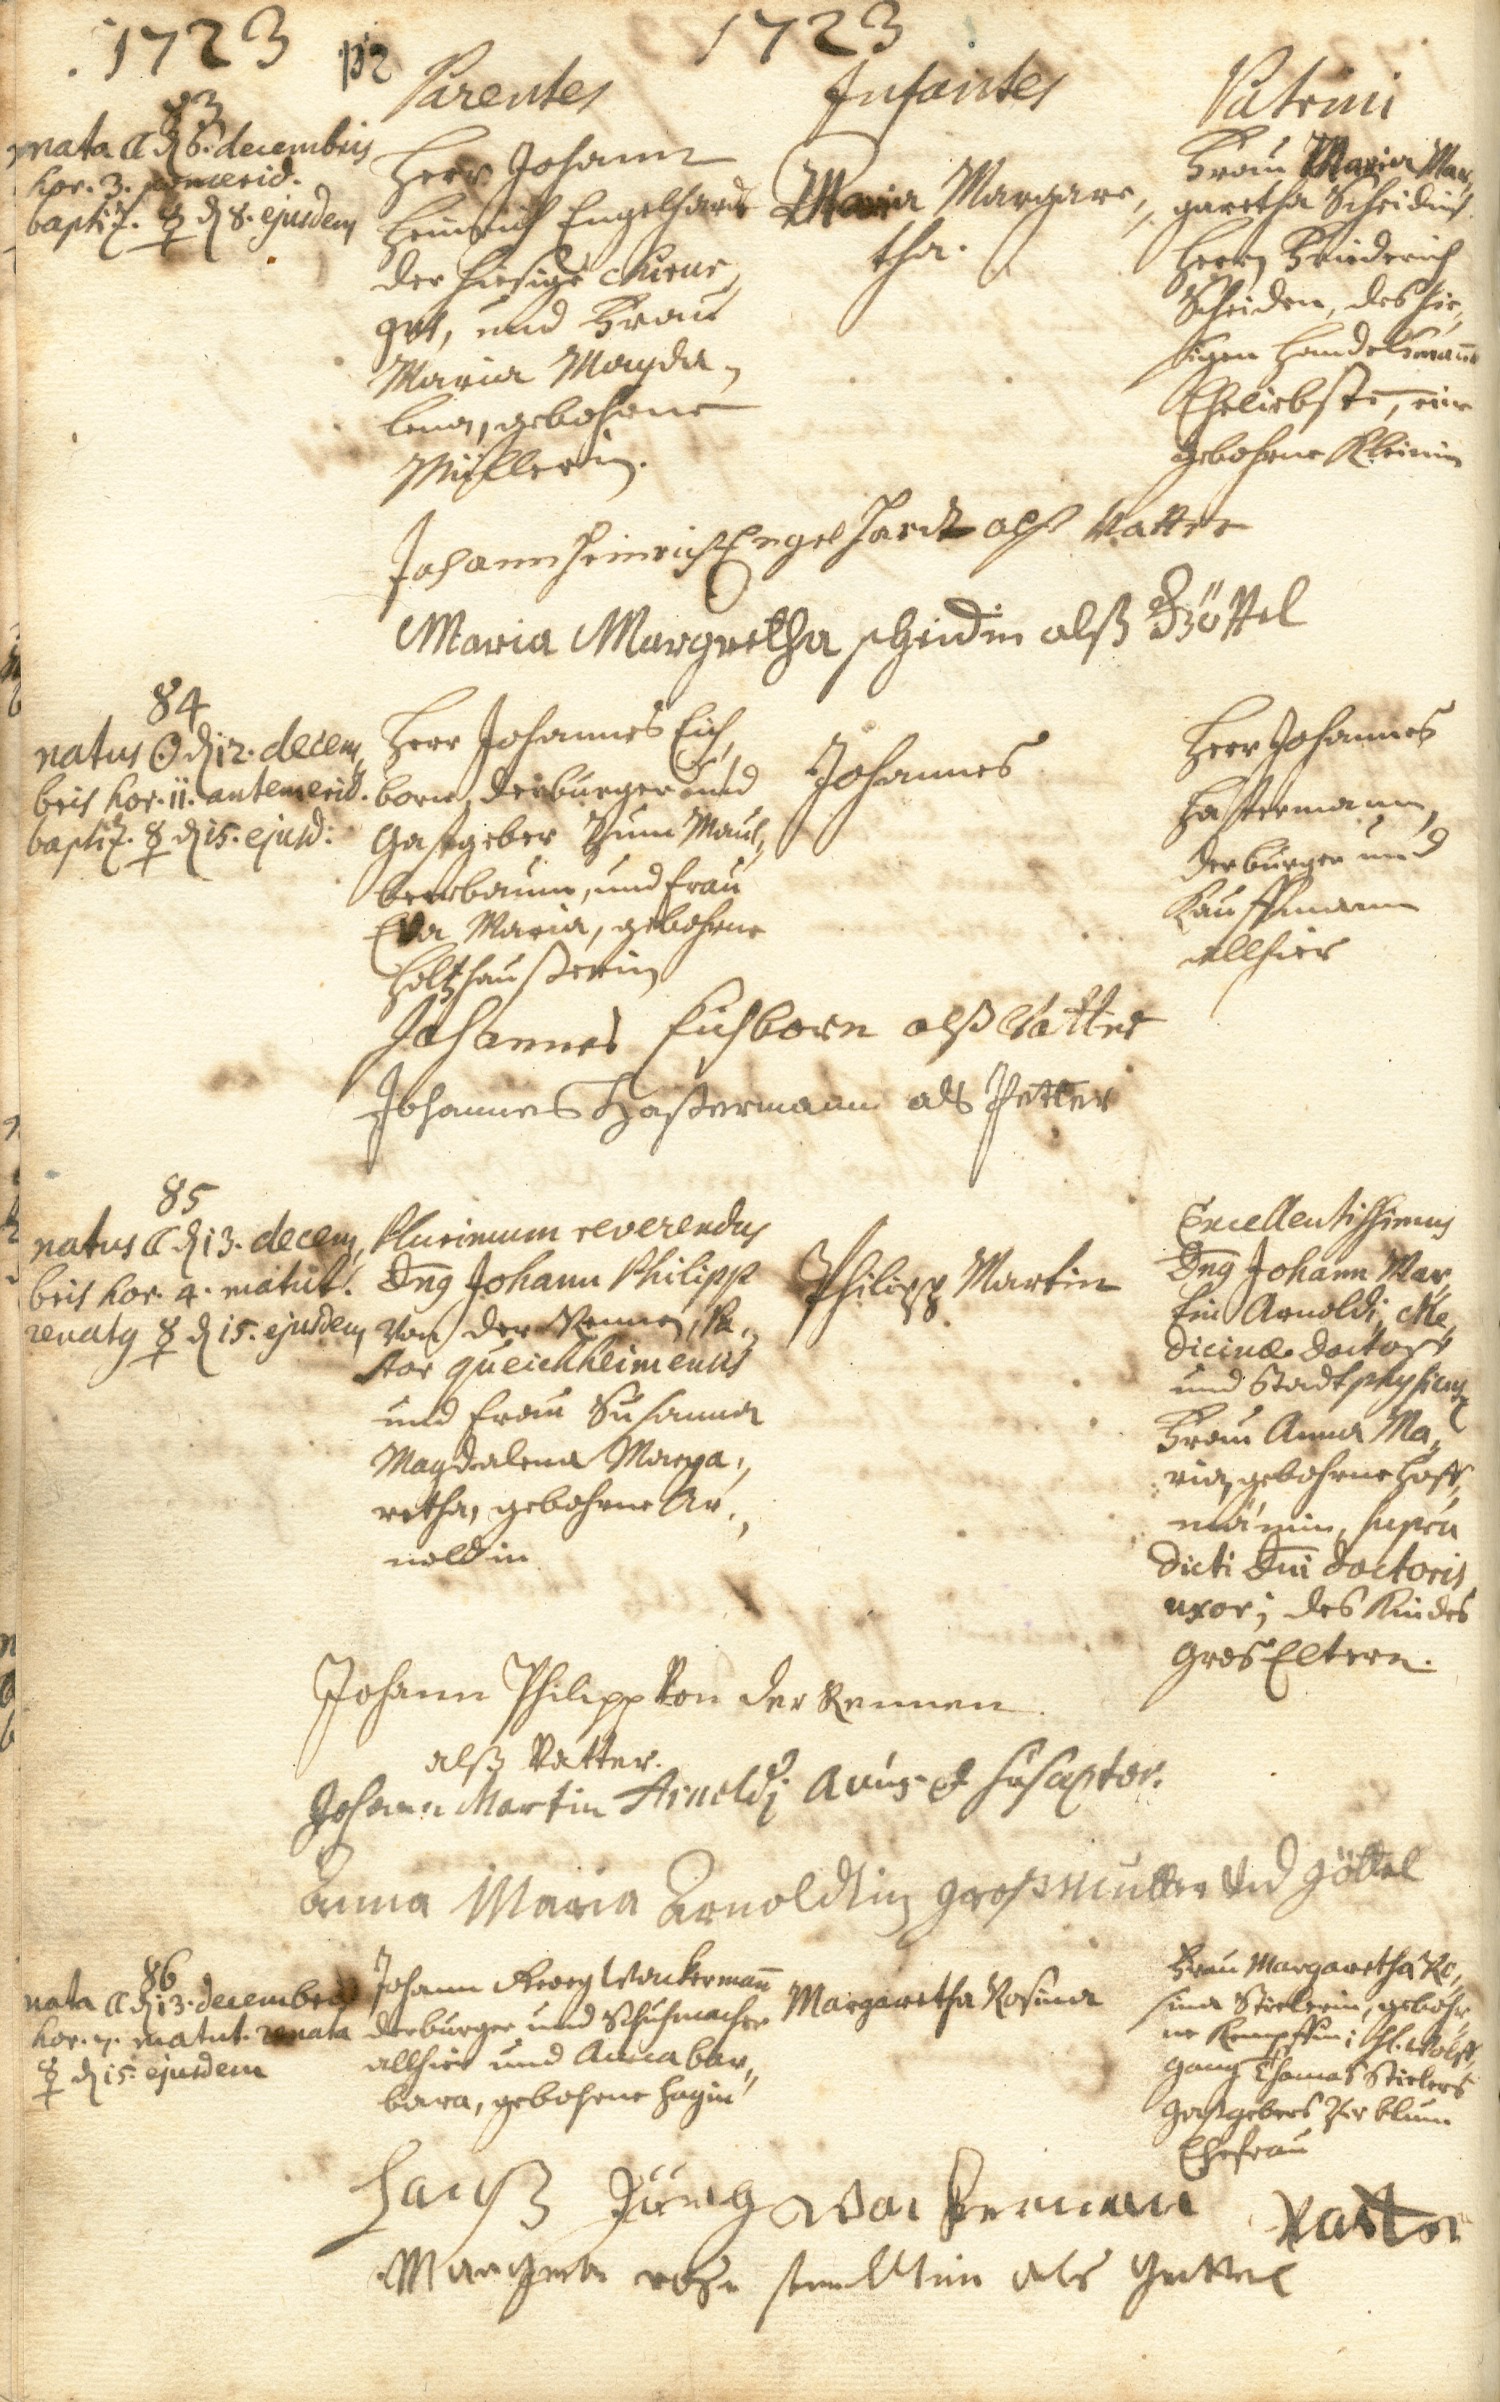 1723
1723
Parentes
Infantes
Patrini
83
nata ☾ d 6. decembris
hor. 3. pomerid.
baptiz. ☿ d 8. ejusdem
Herr Johann
Heinrich Engelhardt
der hiesige Chirur,
gus, und Frau
Maria Magda,
lena, gebohrne
Müllerin.
Maria Margare,
tha.
Frau Maria Mar,
garetha Scheidin
Herrn Friederich
Scheiden, des hie,
sigen Handelsmanns
Eheliebste, eine
gebohrne Kleinin
Johann Heinrich Engelhardt alß Vatter
Maria Margretha scheidin alß Göttel
84
natus ☉ d 12. decem,
bris hor. 11. antemerid.
baptiz. ☿ d 15. ejusd:
Herr Johannes Eich,
born, der burger und
Gastgeber Zum Maul,
beerbaum, und Frau
Eva Maria, gebohrne
Holtzhaußerin
Johannes
Herr Johannes
Hastermann,
der burger und
Kauffmann
allhier
Johannes Eichborn alß Vatter
Johannes Hastermann als Petter
85
natus ☾ d 13. decem,
bris hor. 4. matut.
renatg ☿ d 15. ejusdem
Plurimum reverendus
Dng Johann Philipp
Von der Rennen, Pa,
stor queichheimensis
und Frau Susanna
Magdalena Marga,
retha, gebohrne Ar,
noldin
Philipp Martin
Excellentissimus
Dng Johann Mar,
tin Arnoldi, Me,
dicinæ doctor
und Stadtphysicus
Frau Anna Ma,
ria, gebohrne Hoff,
mänin, supra
dicti Dni doctoris
uxor; des Kindes
GrosEltern.
Johann Philipp Von der Rennen
alß Vatter.
Johann Martin Arnoldi Avus & susceptor.
Anna Maria Arnoldtin großmutter Und göttel
86
nata ☾ d 13. decembris
hor. 7. matut. renata
☿ d 15. ejusdem
Johann Georg Wackermann
der burger und Schuhmacher
allhier und Anna bar,
bara, gebohrne Hagin
Margaretha Rosina
Frau Margaretha Ro,
sina Stielerin, gebohr,
ne Kempffin; H. Wolff,
gang Thomas Stielers
Gastgebers Zur blum
Ehefrau
Hanß Jürg Wackerman
Vastor
Margreta
als Gettel